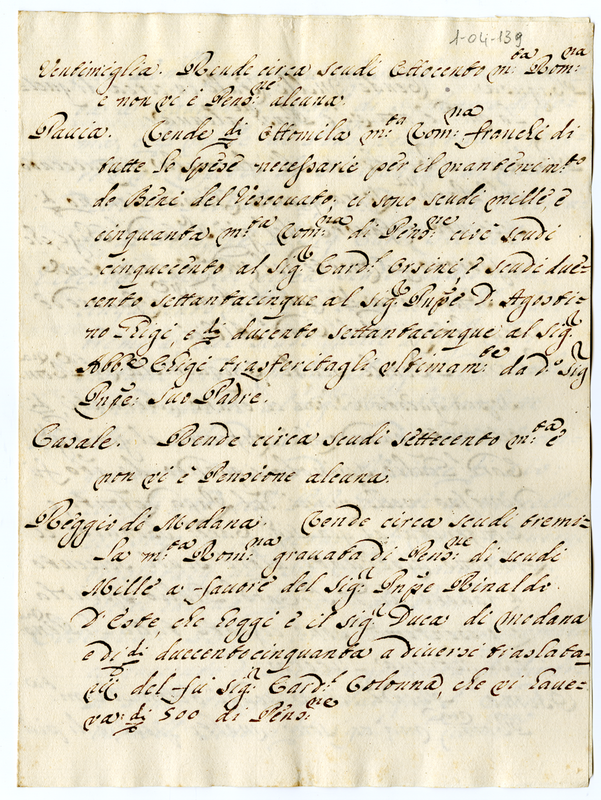 1-04-139
Ventimiglia. Rende circa scudi Ottocento m.ta Rom.na
e non vi è Pens.ne alcuna.
Pavia. Rende di Ottomila m.ta Rom.na franchi di
tutte le spese necessarie per il mantenim.to
de Beni del Vescovato; vi sono scudi mille e
cinquanta m.ta Rom.na di Pens.ne cioè scudi
cinquecento al Sig.r Card.l Orsini e scudi due-
cento settantacinque al Sig.r Pnpe D. Agosti-
no Chigi, e di ducento settantacinque al Sig.r
Abb.e Chigi trasferitagli ultimam.te da d.o Sig.r
Pnpe: suo Padre.
Casale. Rende circa scudi settecento m.ta e
non vi è Pensione alcuna.
Reggio di Modana. Rende circa scudi tremi-
la m.ta Rom.na gravata di Pens.ne di scudi
Mille a favore del Sig.r Pnpe Rinaldo
D'Este, che hoggi è il Sig.r Duca di modana
e di duecentocinquanta a diversi traslata-
del fu Sig.r Card.l Colonna, che vi have-
va: di 500 di Pens.ne